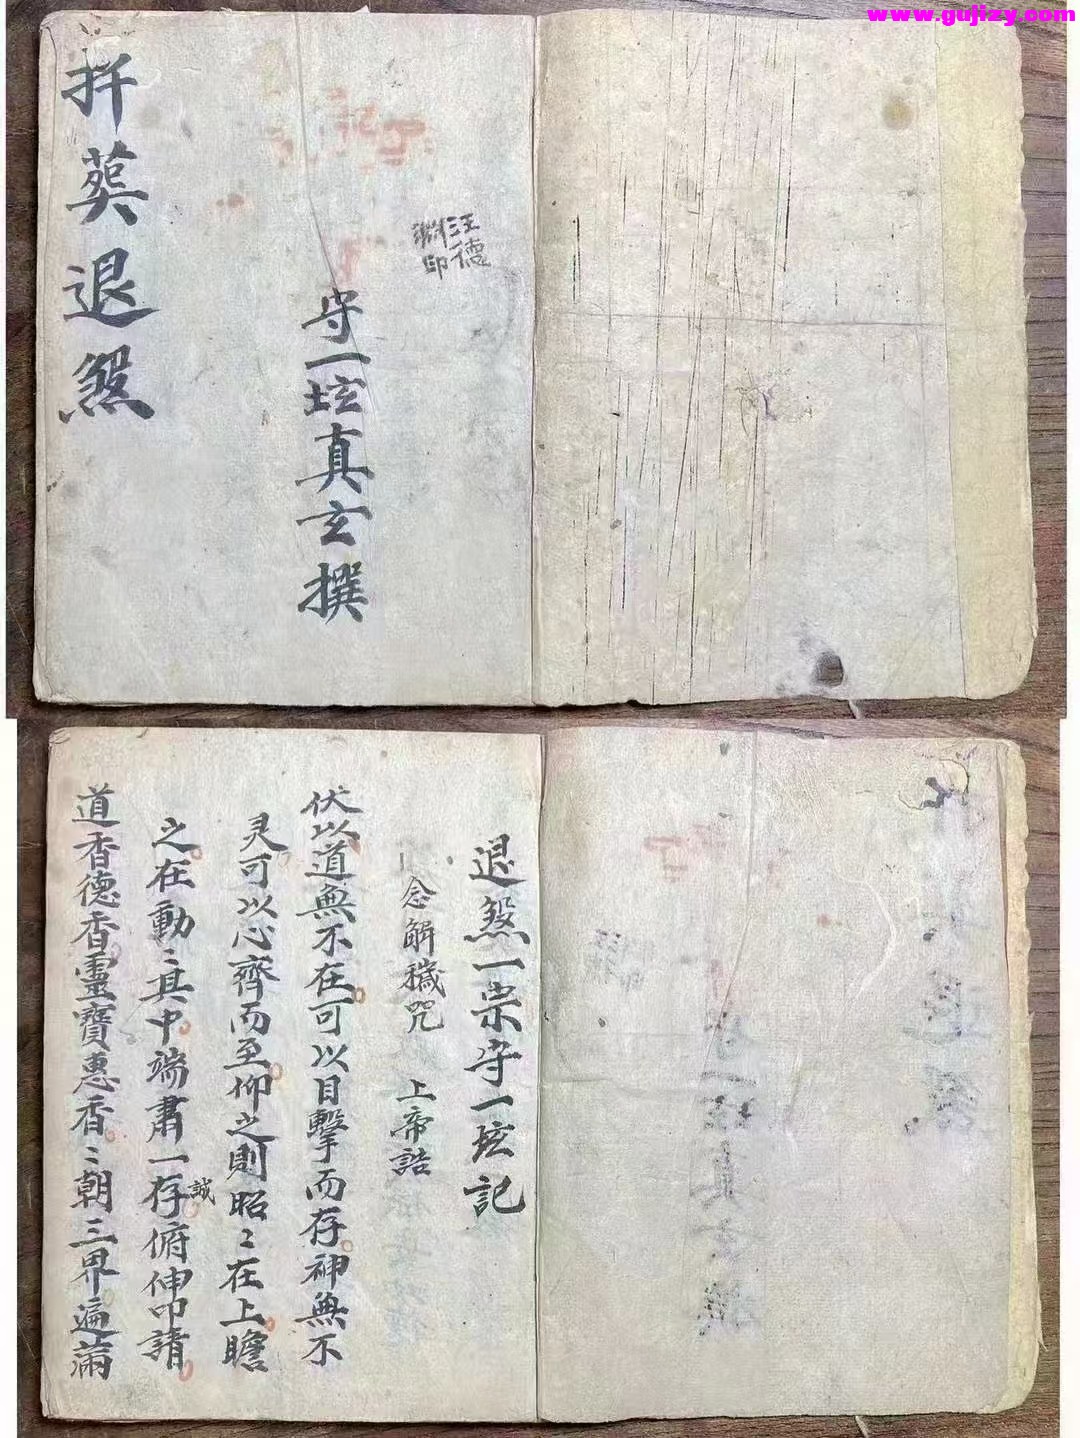 www.gujizy.com
汪德
渊印
守一坛真玄撰
扦葬退煞
退煞一宗守一坛記
念解穢咒 上帝誥
伏以道無不在可以目擊而存神無不
灵可以心齊而至仰之則昭〻在上瞻
之在動〻其中端肅一存誠俯伸叩請
道香德香靈寶惠香〻朝三界遍滿